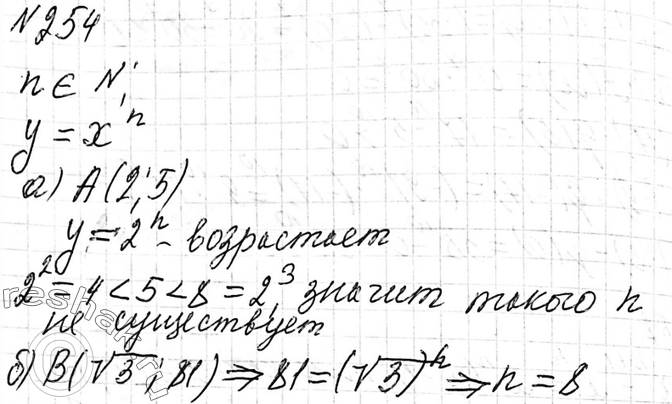 N254
n ∈ N,
y = x^n
а) A(2; 5)
y = 2^n - возрастает
2^2 = 4 < 5 < 8 = 2^3, значит такого n
не существует
б) B(√3; 81) ⇒ 81 = (√3)^n ⇒ n = 8